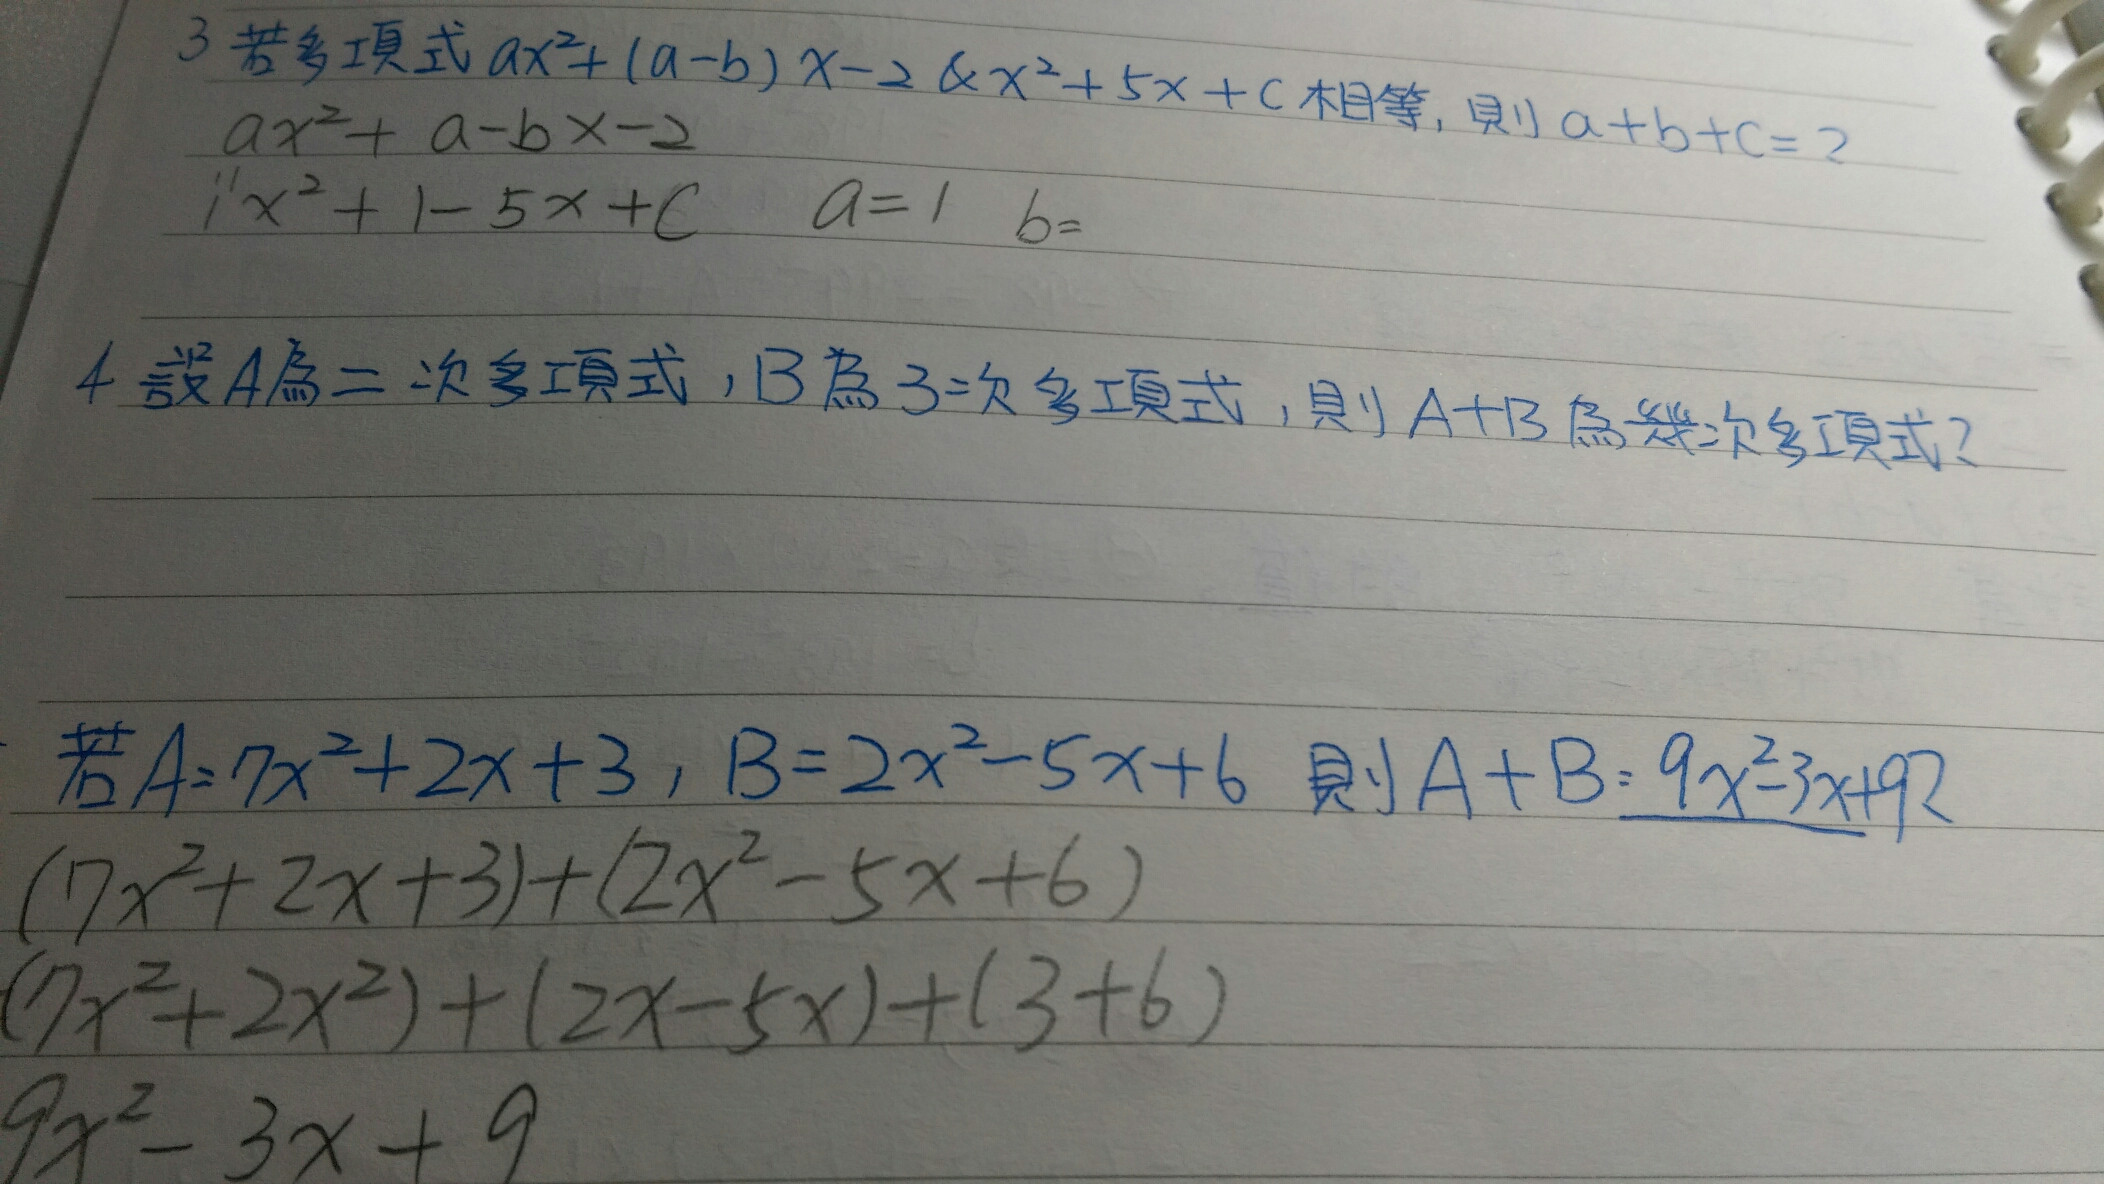 3 若多項式 ax²+(a-b)x-2 & x²+5x+c 相等, 則 a+b+c=?
ax²+ a-bx-2
1x²+1-5x+C a=1 b=
4 設A為二次多項式, B為3次多項式, 則A+B為幾次多項式?
若A=7x²+2x+3, B=2x²-5x+6 則A+B=9x²-3x+9?
(7x²+2x+3)+(2x²-5x+6)
(7x²+2x²)+(2x-5x)+(3+6)
9x²-3x+9